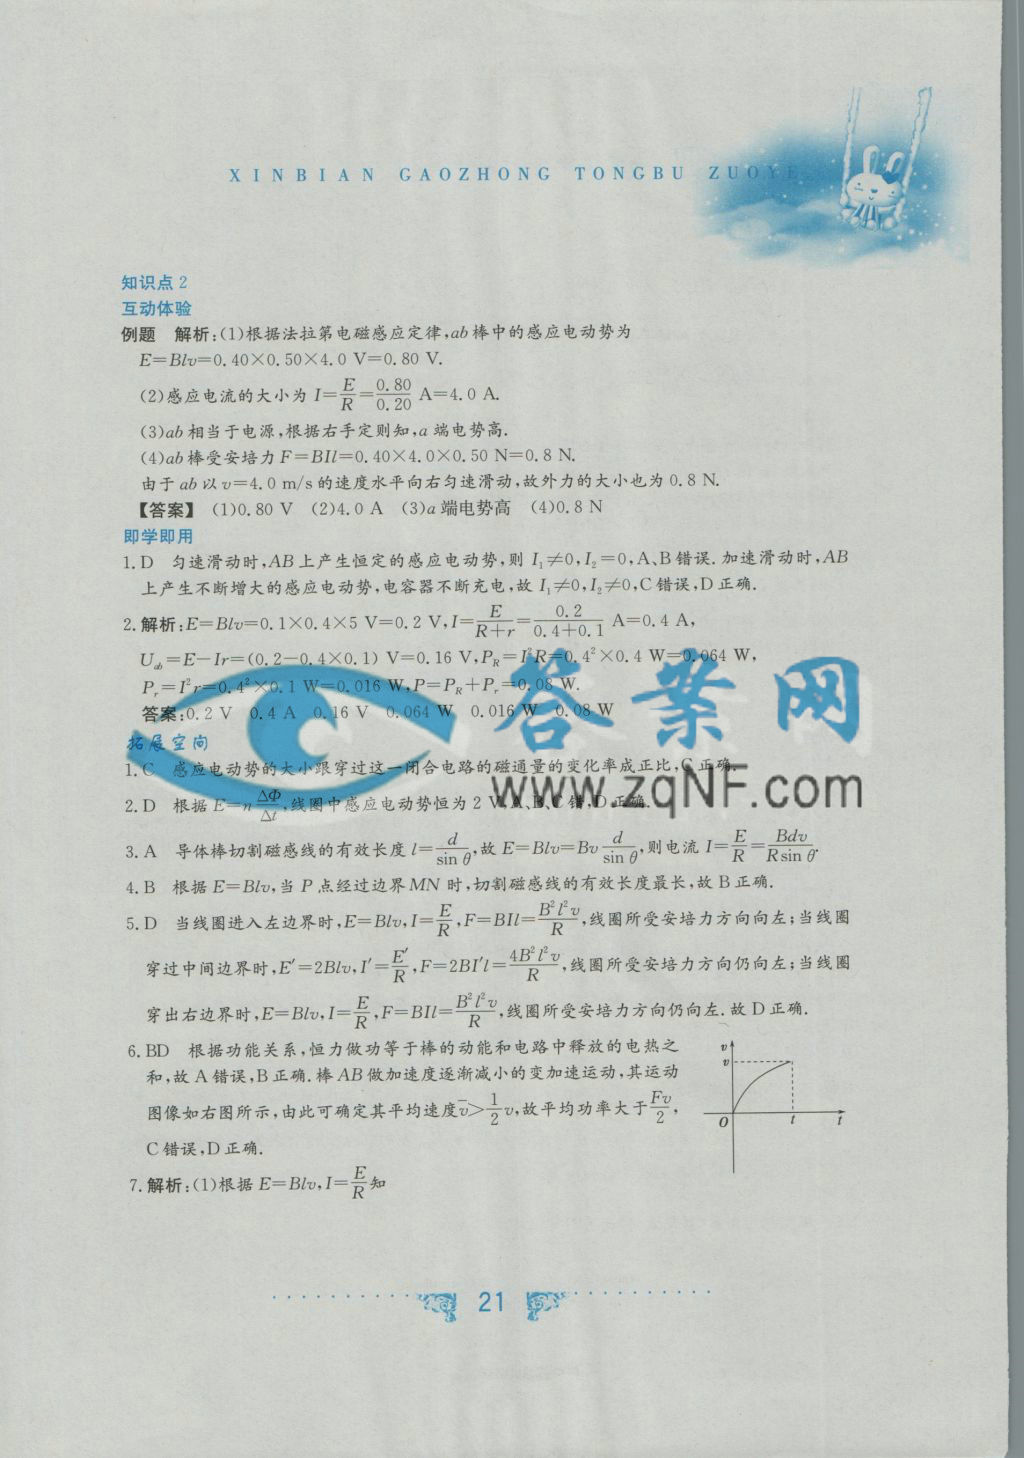 XINBIAN GAOZHONG TONGBU ZUOYE
知识点 2
互动体验
例题 解析:(1)根据法拉第电磁感应定律,ab棒中的感应电动势为
E=Blv=0.40×0.50×4.0 V=0.80 V.
(2)感应电流的大小为 I=E/R=0.80/0.20 A=4.0 A.
(3)ab相当于电源,根据右手定则知,a端电势高.
(4)ab棒受安培力 F=BIl=0.40×4.0×0.50 N=0.8 N.
由于 ab以 v=4.0 m/s的速度水平向右匀速滑动,故外力的大小也为 0.8 N.
【答案】 (1)0.80 V (2)4.0 A (3)a端电势高 (4)0.8 N
即学即用
1. D 匀速滑动时,AB上产生恒定的感应电动势,则 I₁≠0,I₂=0,A、B错误.加速滑动时,AB
上产生不断增大的感应电动势,电容器不断充电,故 I₁≠0,I₂≠0,C错误,D正确.
2. 解析:E=Blv=0.1×0.4×5 V=0.2 V,I=E/(R+r)=0.2/(0.4+0.1) A=0.4 A,
U_ab=E-Ir=(0.2-0.4×0.1) V=0.16 V,P_R=I²R=0.4²×0.4 W=0.064 W,
P_r=I²r=0.4²×0.1 W=0.016 W,P=P_R+P_r=0.08 W.
答案:0.2 V 0.4 A 0.16 V 0.064 W 0.016 W 0.08 W
拓展空间
1. C 感应电动势的大小跟穿过这一闭合电路的磁通量的变化率成正比,C正确.
2. D 根据 E=nΔΦ/Δt,线圈中感应电动势恒为 2 V,A、B、C错,D正确.
3. A 导体棒切割磁感线的有效长度 l=d/sin θ,故 E=Blv=Bv d/sin θ,则电流 I=E/R=Bdv/Rsin θ.
4. B 根据 E=Blv,当 P点经过边界MN时,切割磁感线的有效长度最长,故 B正确.
5. D 当线圈进入左边界时,E=Blv,I=E/R,F=BIl=B²l²v/R,线圈所受安培力方向向左;当线圈
穿过中间边界时,E′=2Blv,I′=E′/R,F=2BI′l=4B²l²v/R,线圈所受安培力方向仍向左;当线圈
穿出右边界时,E=Blv,I=E/R,F=BIl=B²l²v/R,线圈所受安培力方向仍向左.故 D正确.
6. BD 根据功能关系,恒力做功等于棒的动能和电路中释放的电热之
和,故 A错误,B正确.棒 AB做加速度逐渐减小的变加速运动,其运动
图像如右图所示,由此可确定其平均速度v̄>1/2v,故平均功率大于Fv/2,
C错误,D正确.
v
v
O
t
t
7. 解析:(1)根据 E=Blv,I=E/R知
21
答案网
www.zqNF.com